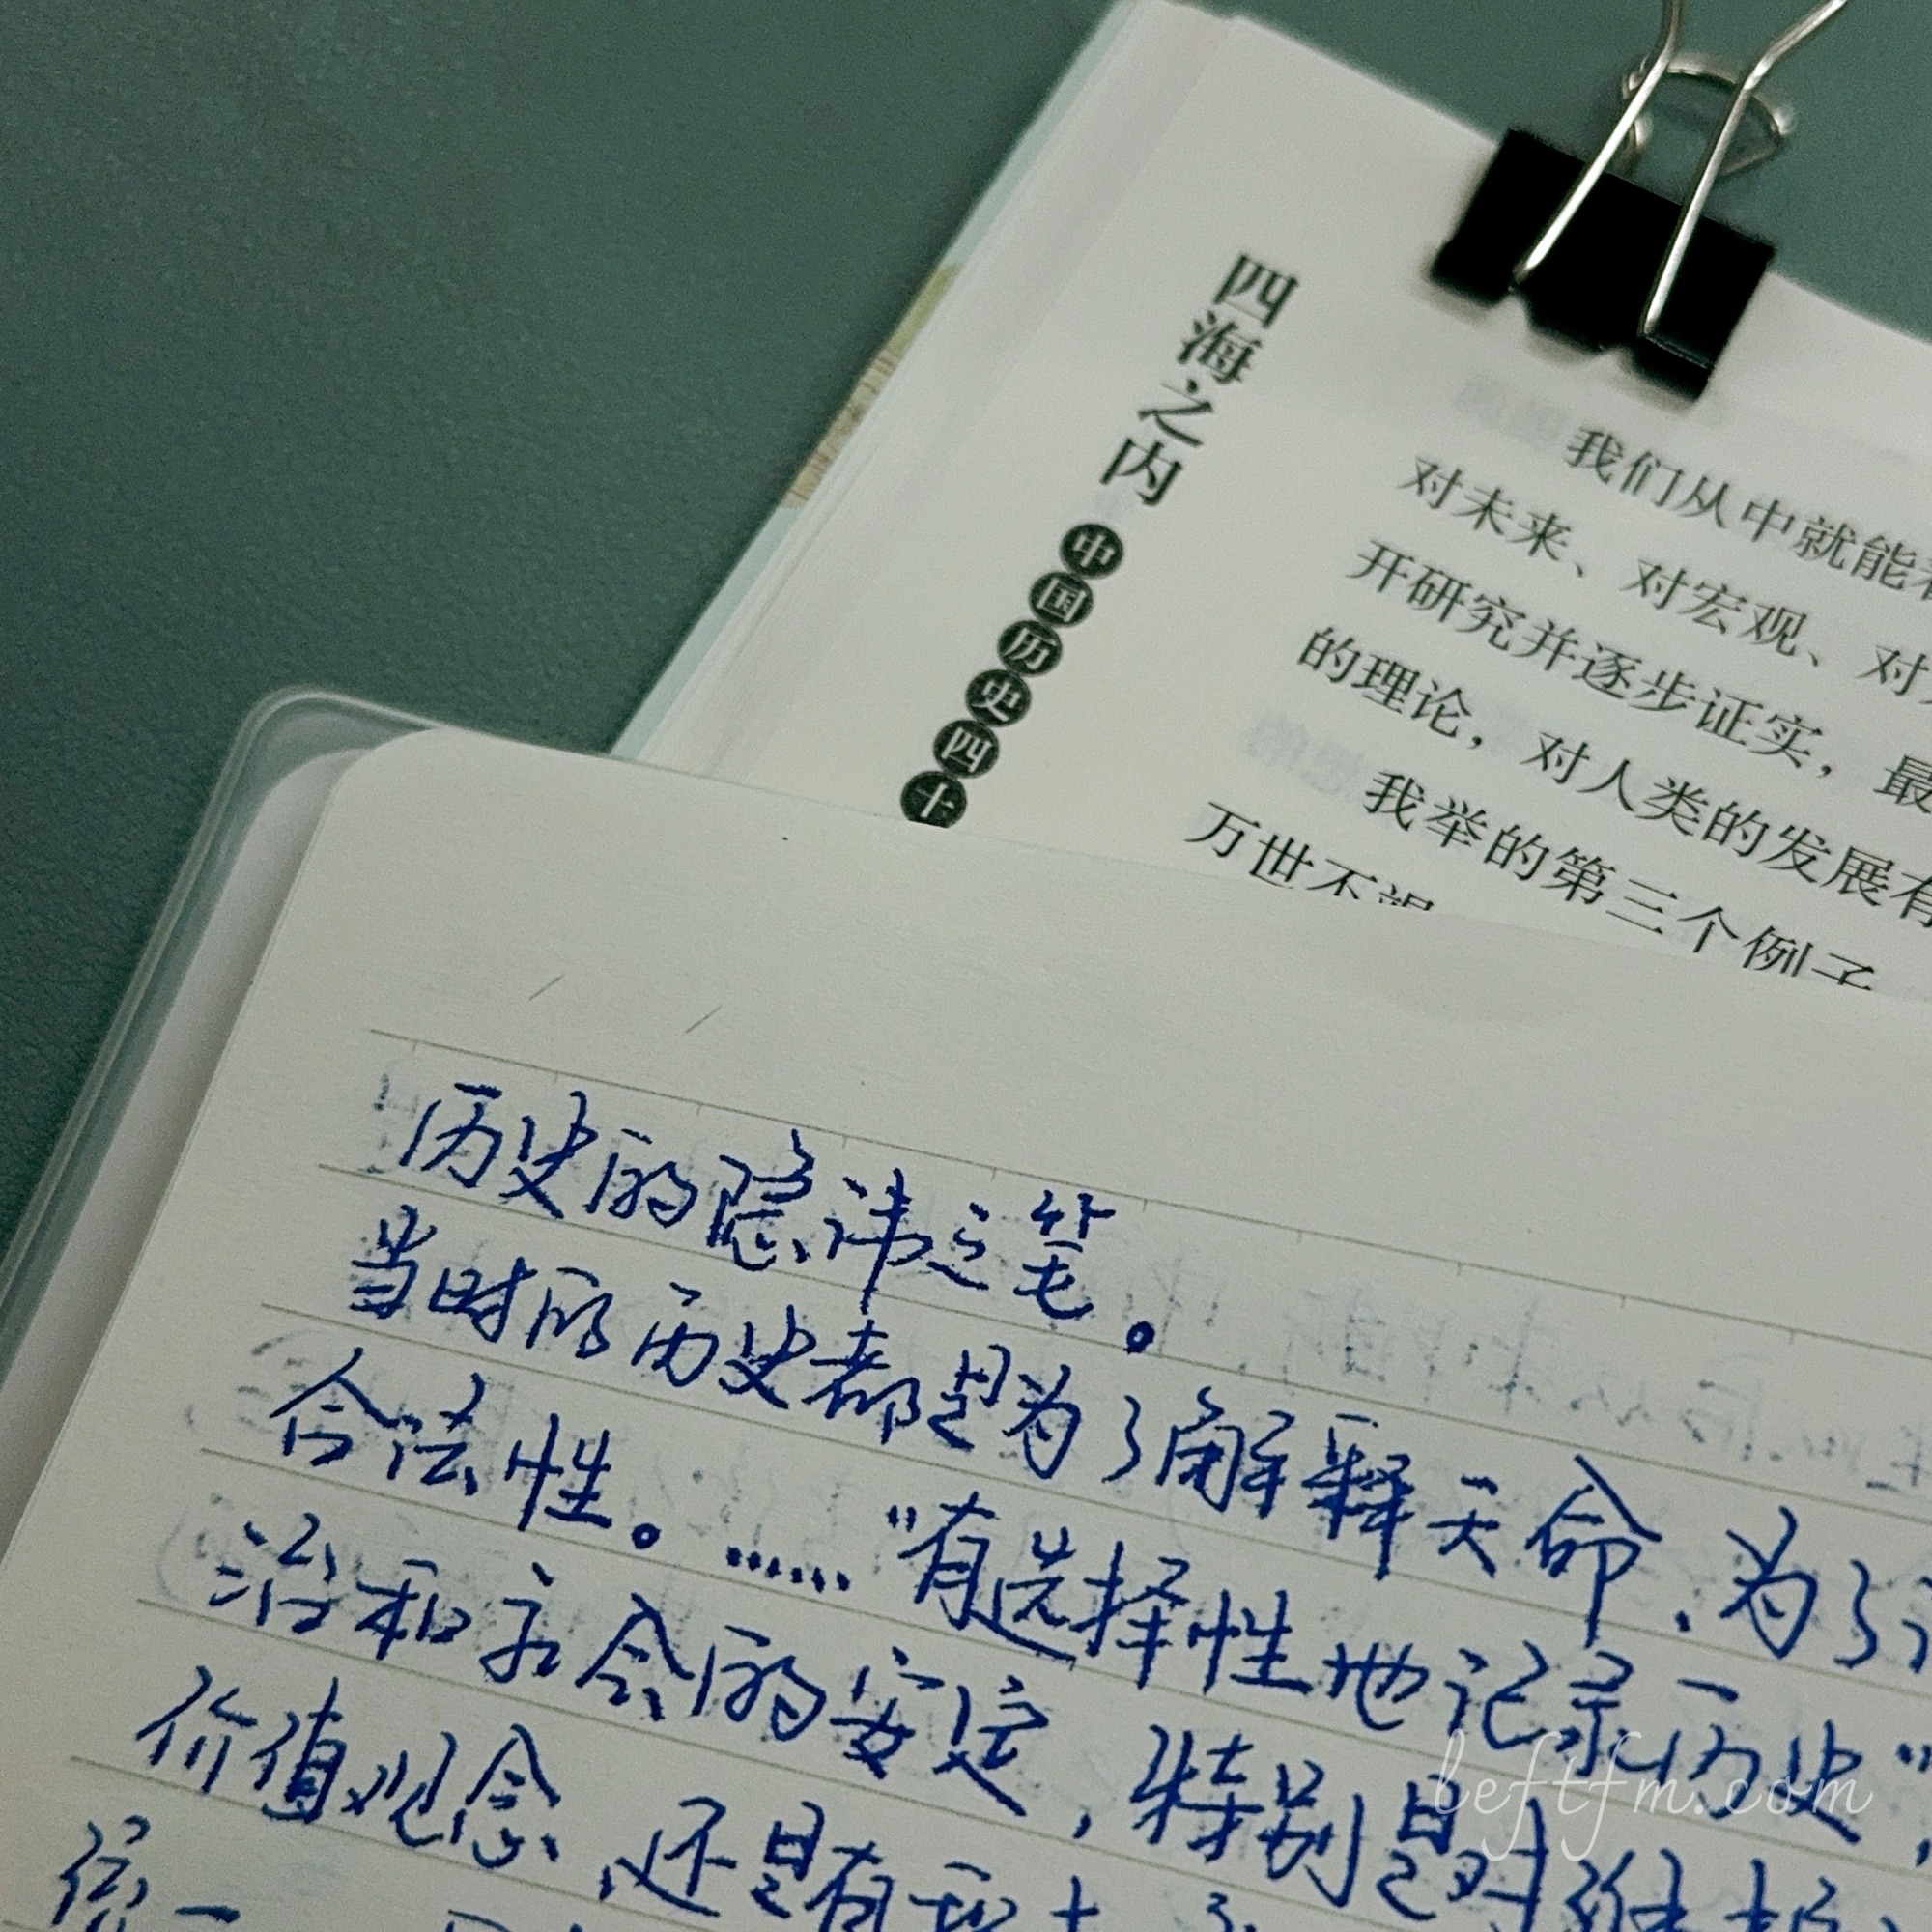 四海之内
中国历史四十
我们从中就能
对未来、对宏观、对
开研究并逐步证实，最
的理论，对人类的发展有
我举的第三个例子
万世不
历史的隐讳之笔。
当时所历史都是为了解释天命、为了
合法性。……“有选择性地记录历史”，
治和社会的安定，特别是对维护
价值观念、还是有
统一
leftfm.com